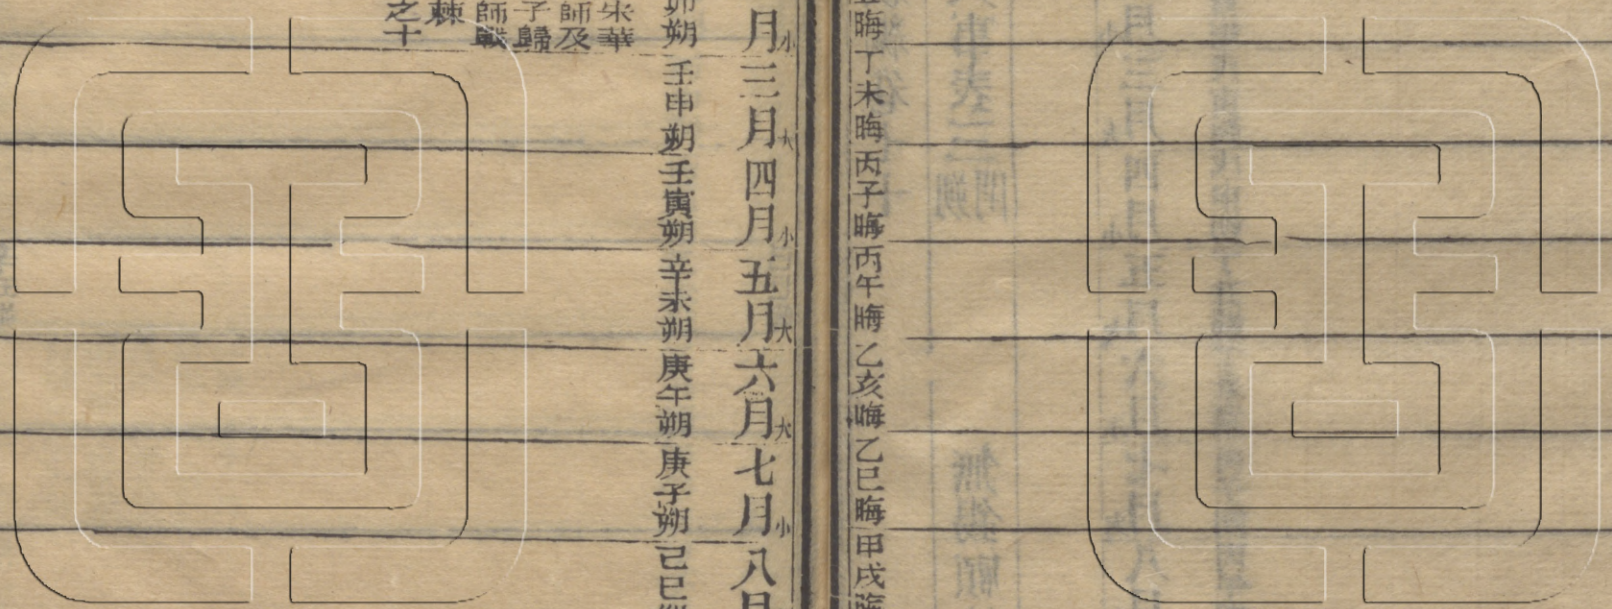 晦丁未晦丙子晦丙午晦乙亥晦乙巳晦甲戌晦
月小三月大四月小五月大六月大七月小八月
朔壬申朔壬寅朔辛未朔庚午朔庚子朔己巳
華
師及
子歸
師戰
棘
之十